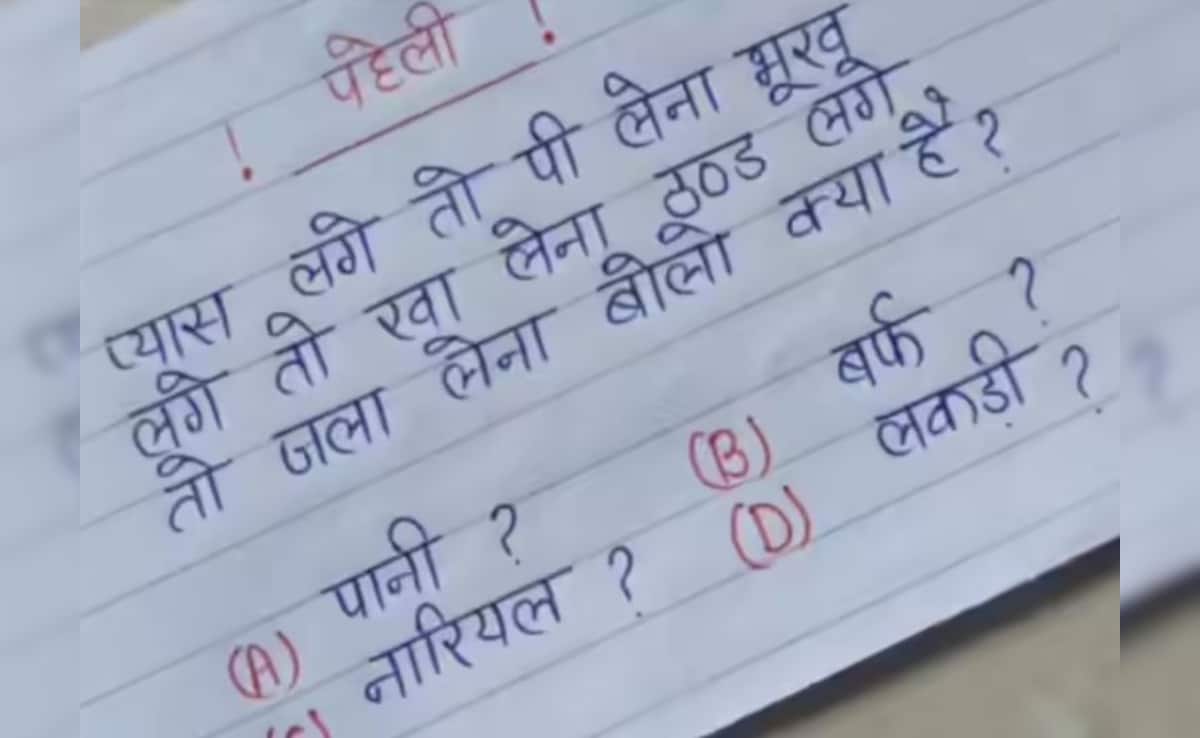 ! पहेली !
प्यास लगे तो पी लेना भूख
लगे तो खा लेना ठण्ड लगे
तो जला लेना बोलो क्या है ?
(A) पानी ? (B) बर्फ ?
(C) नारियल ? (D) लकडी ?